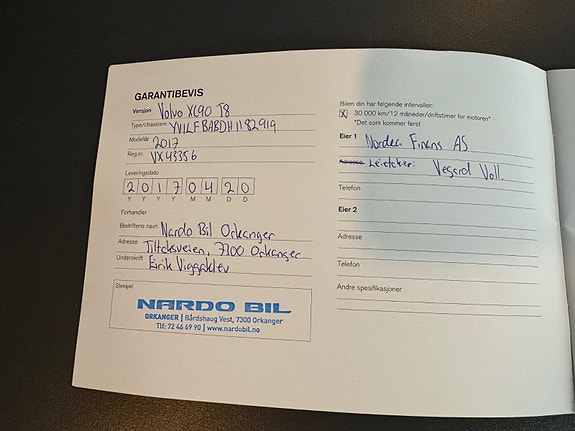 GARANTIBEVIS
Versjon Volvo XC90 T8
Type/chassisnr. YV1LFBABDH1182919
Modellår 2017
Reg.nr. VX43356
Leveringsdato
2 0 1 7 0 4 2 0
Y Y Y Y M M D D
Forhandler
Bedriftens navn Nardo Bil Orkanger
Adresse 7300 Orkanger
Underskrift Eirik
Stempel
NARDO BIL
ORKANGER | Bårdshaug Vest, 7300 Orkanger
Tlf: 72 46 69 90 | www.nardobil.no
Bilen din har følgende intervaller:
X 30 000 km/12 måneder/driftstimer for motoren*
*Det som kommer først
Eier 1 Nordea Finans AS
Adresse Leietaker: Vegard Voll.
Telefon
Eier 2
Adresse
Telefon
Andre spesifikasjoner